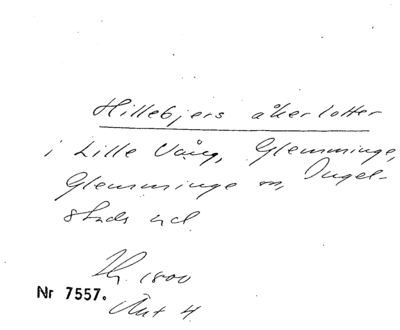 Hillebjers åkerlotter
i Lille Vång, Glemminge,
Glemminge sn, Ingel-
stads hd.
1800
Nr 7557.
Ant 4